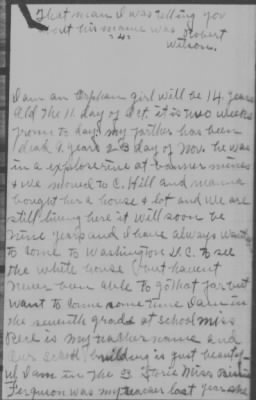 That man I was telling you
about his name was Robert
-4-
Wilson.
I am an Orphan girl will be 14 years
old the 11 day of Oct. it is two weeks
from to day my farther has been
dead 9 years 23 day of Nov. he was
in a explosine at banner mines
& we moved to C. Hill and mama
bought her a house & lot and we are
still living here it will soon be
nine years and I have always want
to come to Washington D.C. to see
the white house but havent
never been able to go that far but
want to come some time I am in
the seventh grade at school miss
Peel is my teacher name and
our school building is just beauty-
ful I am in the Miss
Ferguson was my teacher last year she